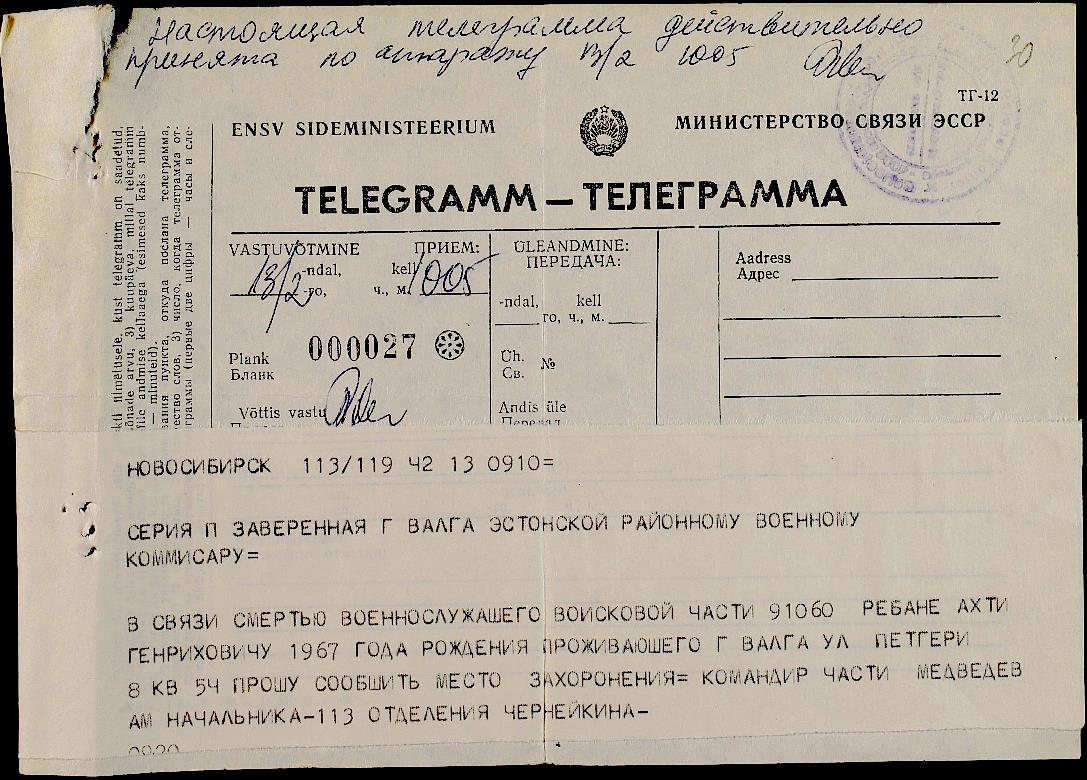 Настоящая телеграмма действительно
принята по аппарату 13/2 1005
30
ТГ-12
ENSV SIDEMINISTEERIUM
МИНИСТЕРСТВО СВЯЗИ ЭССР
TELEGRAMM — ТЕЛЕГРАММА
VASTUVÕTMINE ПРИЕМ:
13/2 -ndal, kell 1005
-го, ч., м.
Plank 000027
Бланк
Võttis vastu
ÜLEANDMINE:
ПЕРЕДАЧА:
-ndal, kell
го, ч., м.
Üh.
Св. №
Andis üle
Передал
Aadress
Адрес
kti nimetusele, kust telegramm on saadetud,
õnade arvu, 3) kuupäeva, millal telegramm
file andmise kellaaega (esimesed kaks numb-
— minuteid).
вания пункта, откуда послана телеграмма,
чество слов, 3) число, когда телеграмма от-
граммы (первые две цифры — часы и сле-
НОВОСИБИРСК 113/119 42 13 0910=
СЕРИЯ П ЗАВЕРЕННАЯ Г ВАЛГА ЭСТОНСКОЙ РАЙОННОМУ ВОЕННОМУ
КОММИСАРУ=
В СВЯЗИ СМЕРТЬЮ ВОЕННОСЛУЖАШЕГО ВОИСКОВОЙ ЧАСТИ 91060 РЕБАНЕ АХТИ
ГЕНРИХОВИЧУ 1967 ГОДА РОЖДЕНИЯ ПРОЖИВАЮШЕГО Г ВАЛГА УЛ ПЕТГЕРИ
8 КВ 54 ПРОШУ СООБШИТЬ МЕСТО ЗАХОРОНЕНИЯ= КОМАНДИР ЧАСТИ МЕДВЕДЕВ
АМ НАЧАЛЬНИКА-113 ОТДЕЛЕНИЯ ЧЕРНЕЙКИНА-
0920